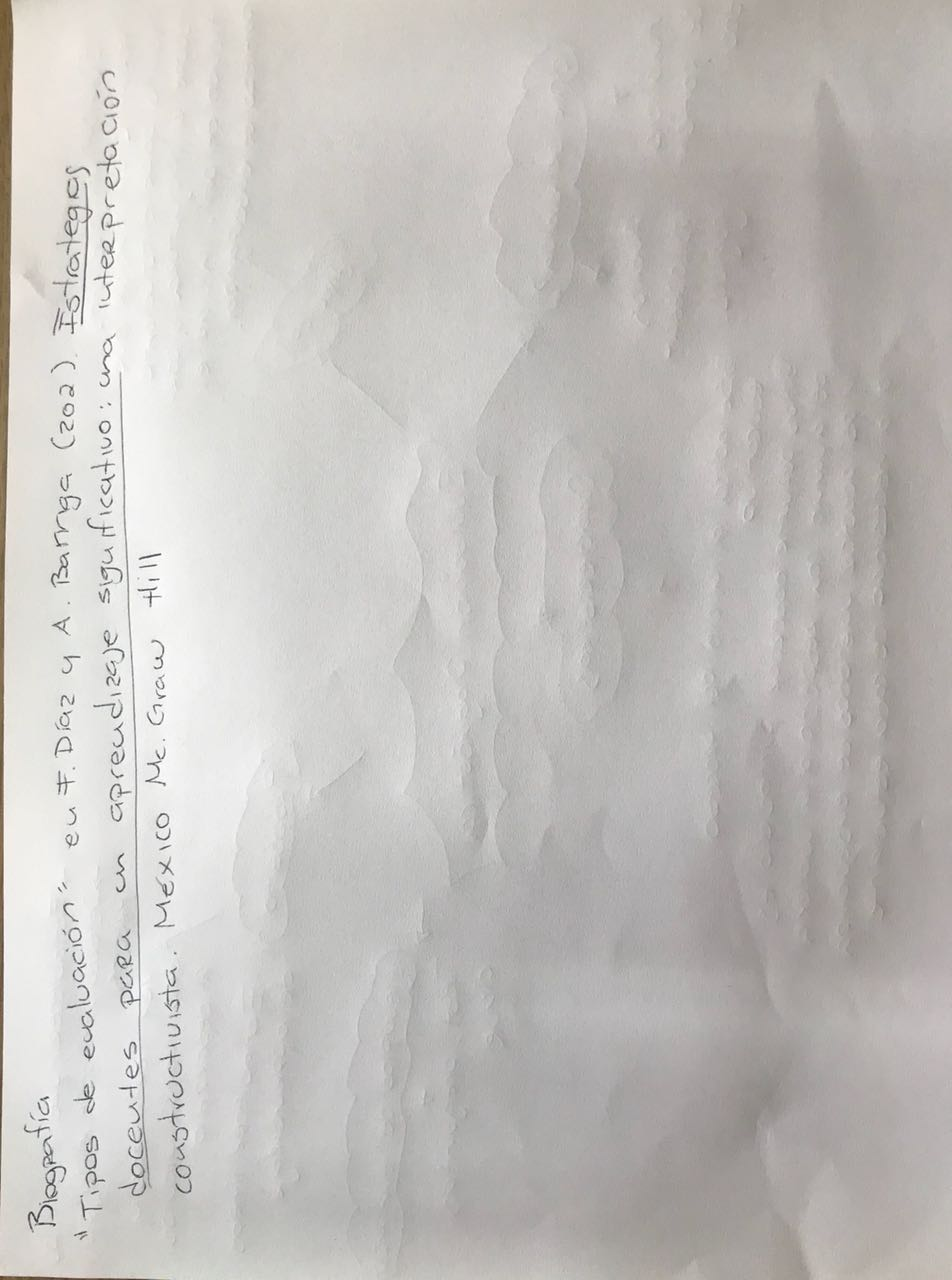 Biografía
"Tipos de evaluación" en F. Díaz y A. Barriga (202). Estrategias
docentes para un aprendizaje significativo: una interpretación
constructivista. México Mc. Graw Hill